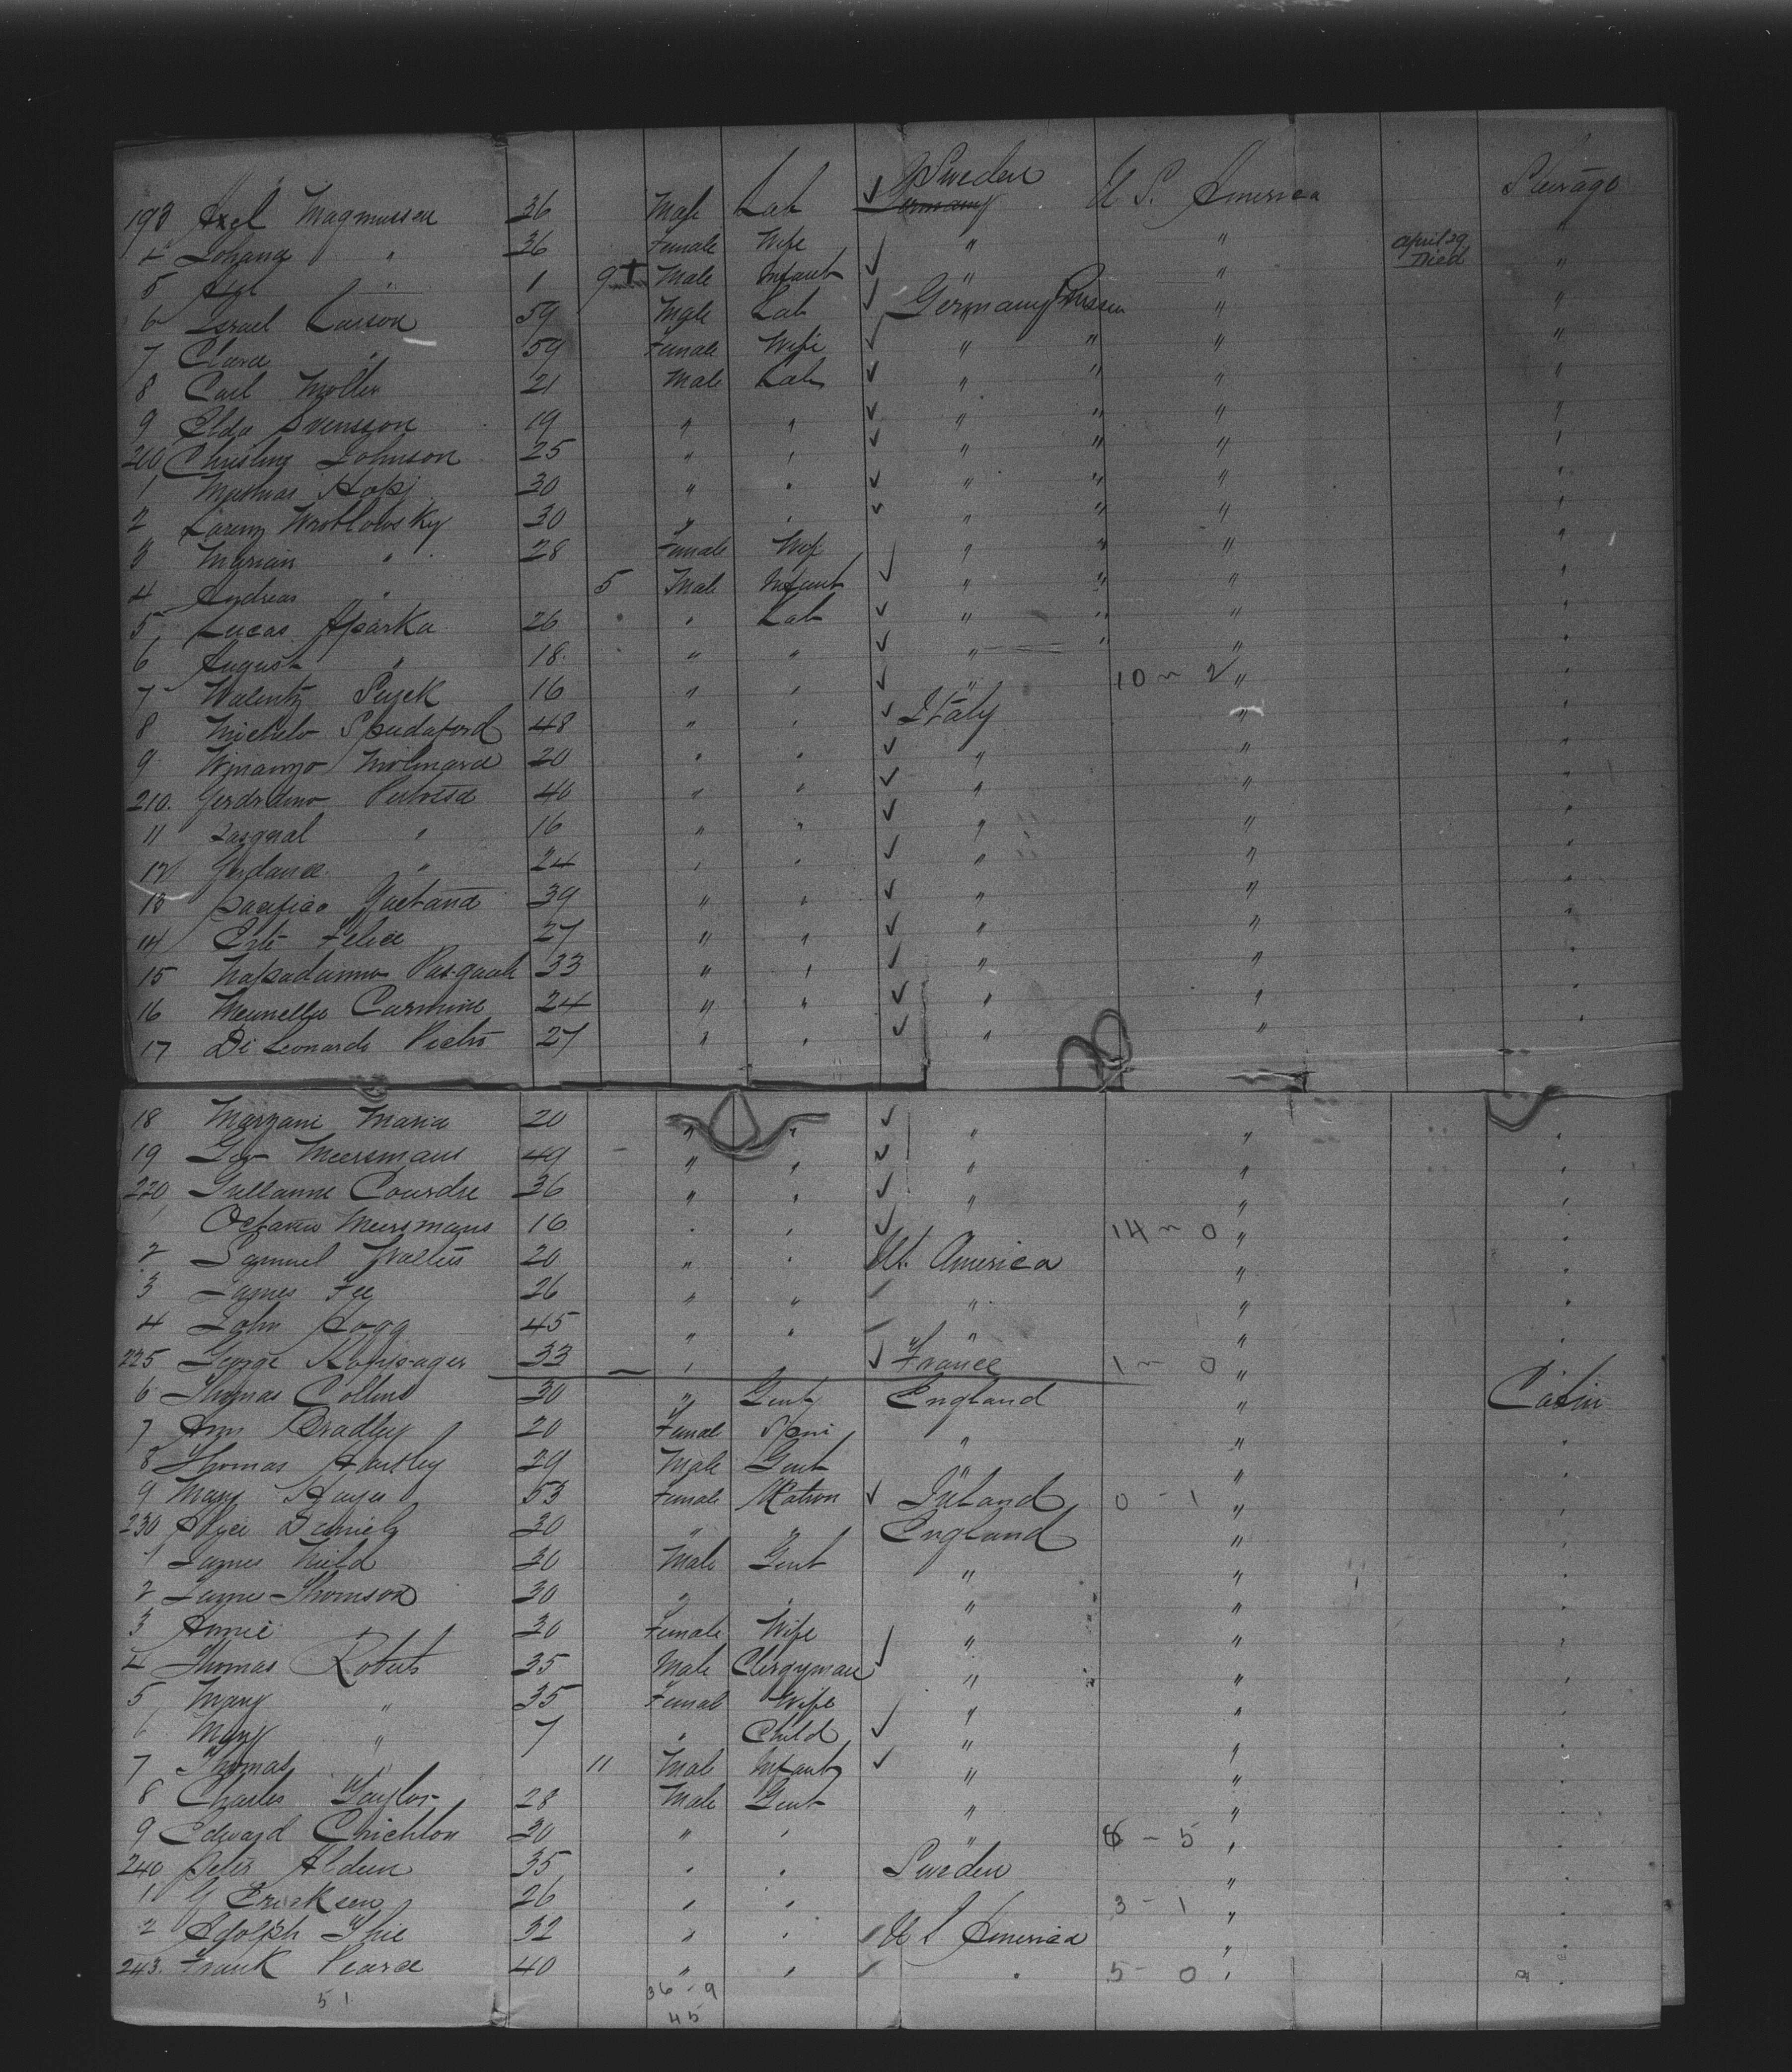 193 Axel Magnussen 36 Male Lab ✓ Sweden Germany U S. America Steerage
4 Johana " 36 Female Wife " " "
5 Axl " 1 9 Male Infant ✓ " " April 29 Died "
6 Israel Larson 59 Male Lab ✓ Germany Prussia " "
7 Clara " 59 Female Wife ✓ " " " "
8 Carl Moller 21 Male Lab ✓ " " " "
9 Elda Svensson 19 " " ✓ " " " "
200 Johnson 25 " " ✓ " " " "
1 Mathias 30 " " ✓ " " " "
2 Lorenz Wroblowsky 30 " " ✓ " " " "
3 Marian " 28 Female Wife " " " "
4 Andreas " 5 Male Infant ✓ " " " "
5 Lucas 26 " Lab ✓ " " " "
6 August " 18 " " ✓ " " " "
7 16 " " ✓ " 10 - 2 " "
8 Michele Spudaford 48 " " ✓ Italy " "
9 Molinard 20 " " ✓ " " "
210. 40 " " ✓ " " "
11 " 16 " " ✓ " " "
12 " 24 " " ✓ " " "
13 Pacifico Gaetana 39 " " ✓ " " "
14 Felice 27 " " ✓ " " "
15 Pasquale 33 " " ✓ " " "
16 Carmine 24 " " ✓ " " "
17 Di Leonardo Pietro 27 " " ✓ " " "
18 Marzani Maria 20 " " ✓ " " "
19 Meersmans 49 " " ✓ " " "
220 36 " " ✓ " " "
1 Octavie Meersmans 16 " " ✓ 14 - 0 " "
2 Samuel Walters 20 " " America " "
3 James Fee 26 " " " " "
4 John Hogg 45 " " " " "
225 George 33 " " ✓ France 1 - 0 " "
6 Thomas Collins 30 " Gent England " Cabin
7 Ann Bradley 20 Female Spin " " "
8 Thomas Hartley 29 Male Gent " " "
9 Mary Hayes 53 Female Matron ✓ Ireland 0 - 1 " "
230 Daniels 30 " " England " "
1 James Nield 30 Male Gent " " "
2 James Thomson 30 " " " " "
3 Annie 30 Female Wife ✓ " " "
4 Thomas Roberts 35 Male Clergyman " " "
5 Mary " 35 Female Wife " " "
6 Mary " 7 " Child ✓ " " "
7 Thomas " 11 Male Infant ✓ " " "
8 Charles Taylor 28 Male Gent " " "
9 Edward Crichton 30 " " " 8 - 5 " "
240 Peter 35 " " Sweden " "
1 G Ericksen 26 " " 3 - 1 " "
2 Adolph 32 " " U S America " "
243. Frank Pearce 40 " " " 5 - 0 " "
51 36 - 9
45